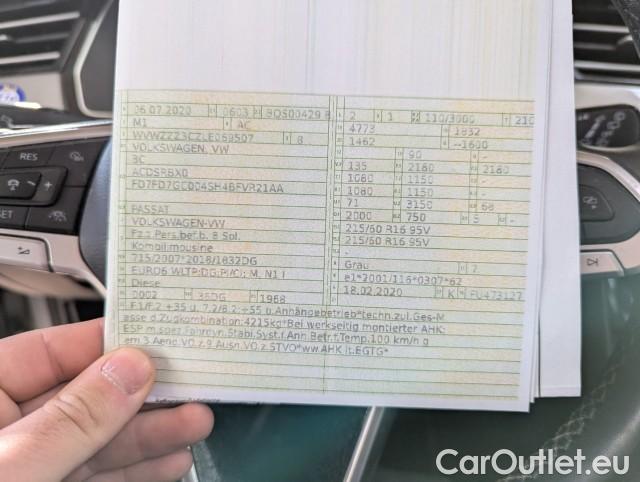 RES
SET
06.07.2020 0603 BQS00429 8
M1 AC
WVWZZZ3CZLE069507 8
VOLKSWAGEN, VW
3C
ACDSRBX0
FD7FD7GC004SH4BFVR21AA
PASSAT
VOLKSWAGEN-VW
Fz.z.Pers.bef.b. 8 Spl.
Kombilimousine
715/2007*2018/1832DG
EURO6 WLTP;DG;PI/CI; M, N1 I
Diesel
0002 36DG 1968
2 1 110/3000 210
4773 1832
1462 --1600
- 90 -
135 2180 2180
1080 1150 -
1080 1150 -
71 3150 68
2000 750 5 -
215/60 R16 95V
215/60 R16 95V
-
-
Grau 7
e1*2001/116*0307*62
18.02.2020 K FU473127
F.1/F.2:+35 u. 7.2/8.2:+55 b.Anhängebetrieb*techn.zul.Ges-M
asse d.Zugkombination:4215kg*Bei werkseitig montierter AHK:
ESP m.spez.Fahrdyn.Stabi.Syst.f.Anh.Betr.f.Temp.100 km/h g
em 3.Aend.VO.z.9 Ausn.VO.z.STVO*ww.AHK lt.EGTG*
CarOutlet.eu